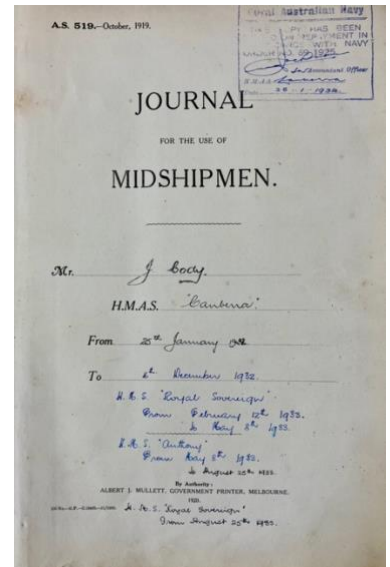 A.S. 519.—October, 1919.
Royal Australian Navy
HAS BEEN
IN
WITH NAVY
1935.
Commanding Officer
JOURNAL
FOR THE USE OF
MIDSHIPMEN.
Mr. J Cody.
H.M.A.S. "Canberra".
From 25th January
To December 1932.
H.M.S. "Royal Sovereign"
From February 12th 1933.
to May 8th 1933.
H.M.S. "Anthony"
From May 8th 1933.
to August 25th 1933.
By Authority:
ALBERT J. MULLETT, GOVERNMENT PRINTER, MELBOURNE.
1920.
H.M.S. "Royal Sovereign"
From August 25th 1933.